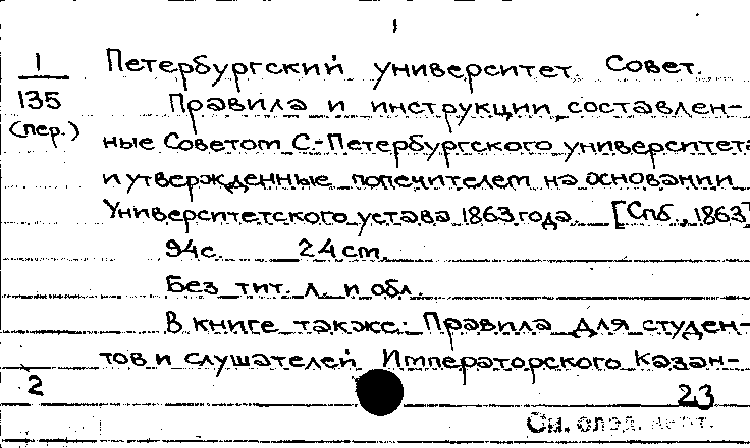 1
1 Петербургский университет. Совет.
135 Правила и инструкции, составлен-
(пер.) ные Советом С-Петербургского университета
и утвержденные попечителем на основании
Университетского устава 1863 года. [Спб., 1863]
94с. 24 cm.
Без тит. л. и обл.
В книге также: Правила для студен-
тов и слушателей Императорского Казан-
2 23
См. след. карт.